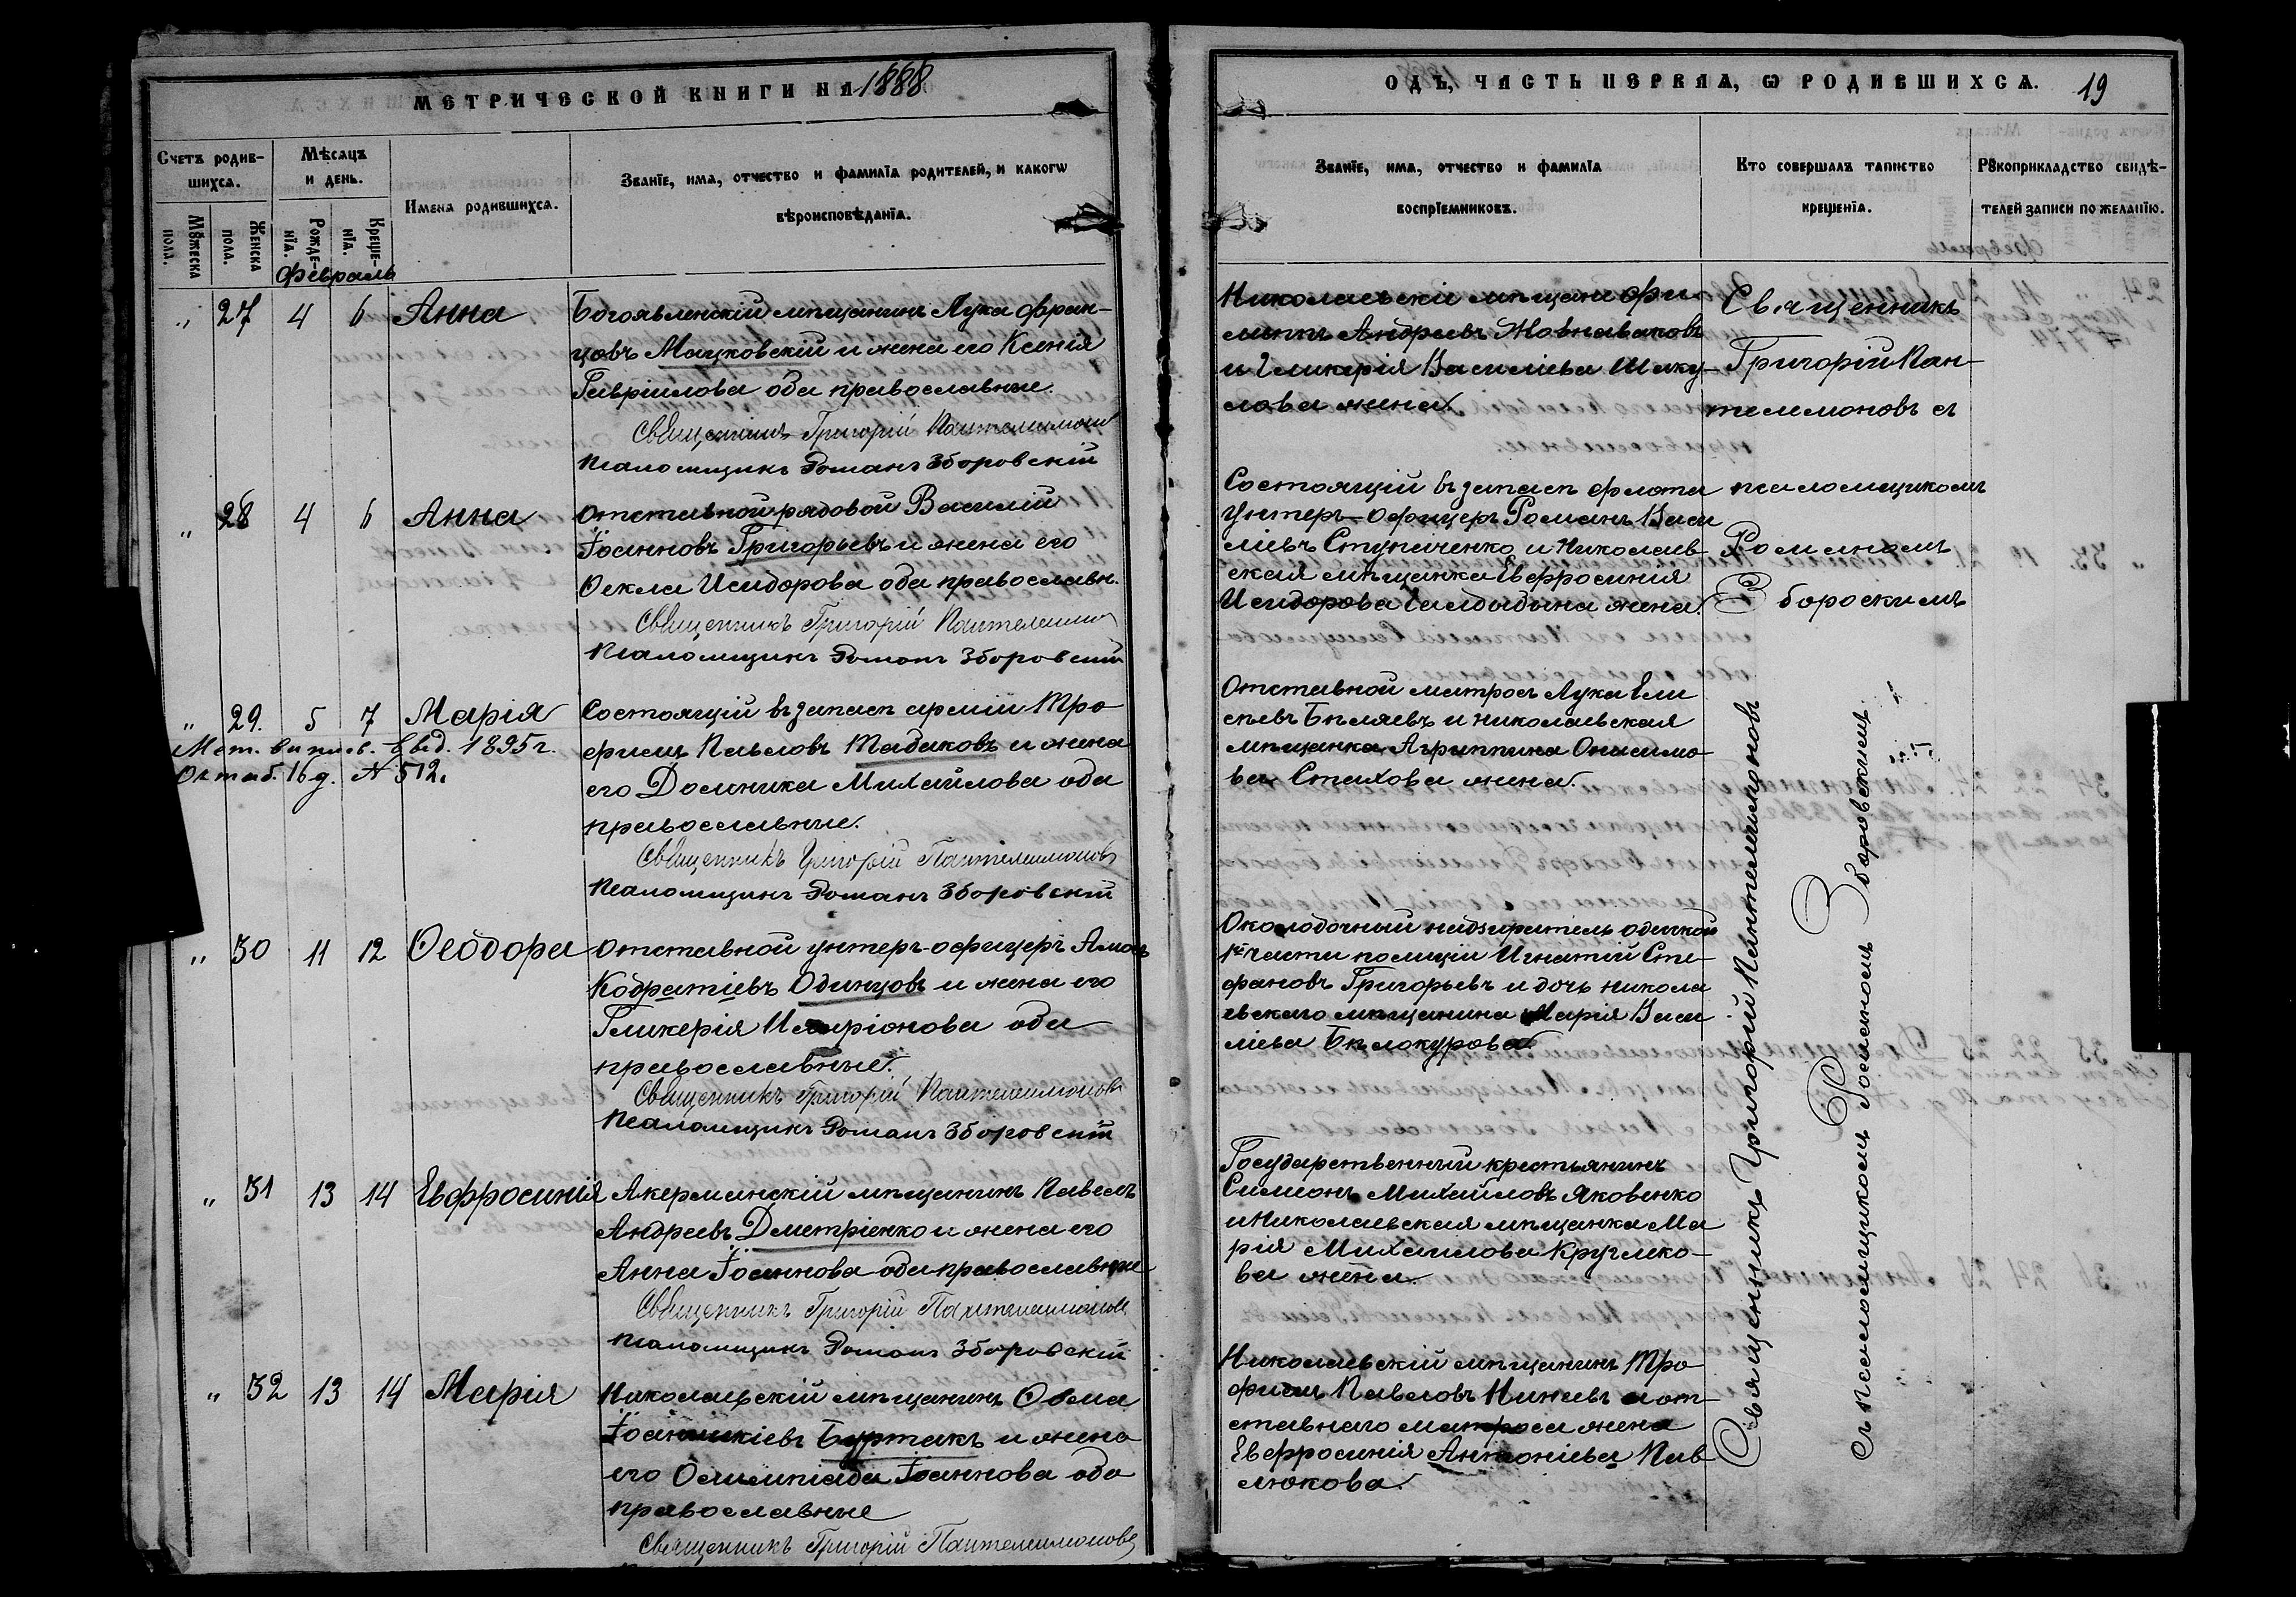 МЕТРИЧЕСКОЙ КНИГИ НА 1888
Счетъ родив-
шихся.
Мѣсяцъ
и день.
Имена родившихся.
Званїе, имя, отчество и фамилїя родителей, и какогѡ
вѣроисповѣданїя.
Мꙋжеска
пола.
Женска
пола.
Рожде-
нїя.
Креще-
нїя.
Февраль
„ 27 4 6 Анна
Богоявленскій мѣщанинъ Лука Фран-
цовъ Мацковскій и жена его Ксенія
Гавріилова оба православные.
Священникъ Григорій Пантелеимонов
Псаломщикъ Романъ Зборовскій
„ 28 4 6 Анна
Отставной рядовой Василій
Іоанновъ Григорьевъ и жена его
Ѳекла Исидорова оба православн.
Священникъ Григорій Пантелеимо
Псаломщикъ Романъ Зборовскій
„ 29. 5 7 Марія
Мет. выпись. выд. 1895 г.
Октяб. 16 д. № 512.
Состоящій въ запасѣ арміи Тро
фимъ Павловъ Табаковъ и жена
его Домника Михайлова оба
православные.
Священникъ Григорій Пантелеимоновъ
Псаломщикъ Романъ Зборовскій
„ 30 11 12 Ѳеодора
Отставной унтеръ-офицеръ Амосъ
Кодратіевъ Одинцовъ и жена его
Гликерія Иларіонова оба
православные.
Священникъ Григорій Пантелеимоновъ
Псаломщикъ Романъ Зборовскій
„ 31 13 14 Евфросинія
Акерманскій мѣщанинъ Павелъ
Андреевъ Дметріенко и жена его
Анна Іоаннова оба православные
Священникъ Григорій Пантелеимоновъ
Псаломщикъ Романъ Зборовскій
„ 32 13 14 Марія
Николаевскій мѣщанинъ Ѳома
Іоанникіевъ Буртакъ и жена
его Олимпіада Іоаннова оба
православные
Священникъ Григорій Пантелеимоновъ
ОДЪ, ЧАСТЬ ПЕРВАЯ, Ѡ РОДИВШИХСЯ. 19
Званїе, имя, отчество и фамилїя
воспрїемниковъ.
Кто совершалъ таинство
крещенїя.
Рꙋкоприкладство свидѣ-
телей записи по желанїю.
Николаевскіи мѣщане Фи-
липпъ Андреевъ
и Гликерія Василіева Шаку-
лова жена.
Священникъ
Григорій Пан-
телемоновъ съ
псаломщикомъ
Романомъ
Збороскимъ
Состоящій въ запасѣ флота
Унтеръ-Офицеръ Романъ Васи
ліевъ Ступаченко и Николаев
ская мѣщанка Евфросинія
Исидорова Галдыдына жена.
Отставной матросъ Лука Ели
сѣевъ Бѣляевъ и николаевская
мѣщанка Агриппина Онисимо
ва Стахова жена.
Околодочный надзиратель одеской
1й части полиціи Игнатій Сте-
фановъ Григорьевъ и дочь никола
евскаго мѣщанина Марія Васи
ліева Бѣлокурова.
Государственный крестьянинъ
Симеонъ Михайловъ Яковенко
и Николаевская мѣщанка Ма
рія Михаилова Кругляко-
ва жена.
Николаевскій мѣщанинъ Тро
фимъ Павловъ Минаевъ и от-
ставнаго матроса жена
Евфросинія Антоніева Пав-
люкова.
Священникъ Григорій Пантелеимоновъ
съ псаломщикомъ Романомъ Зборовскимъ.